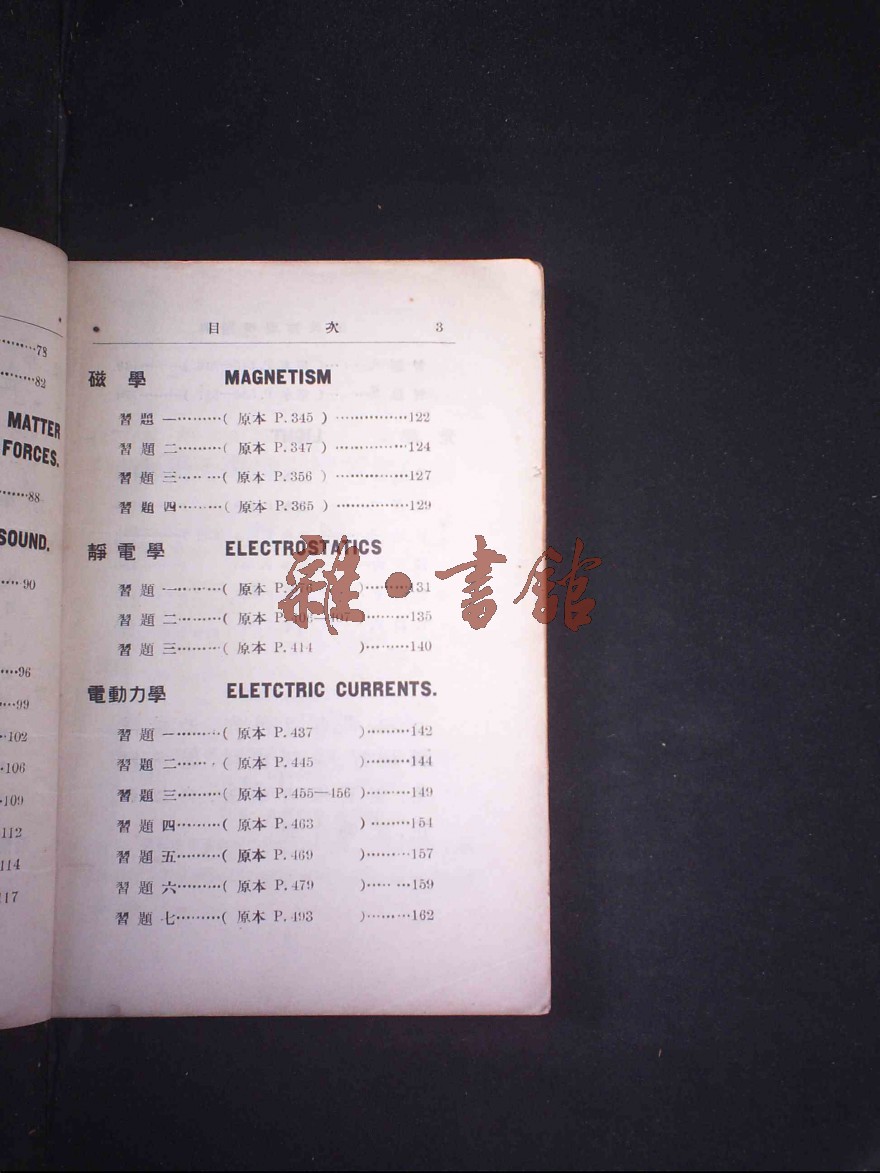 78
82
MATTER
FORCES.
88
SOUND.
90
96
99
102
106
109
112
114
117
目 次 3
磁 學 MAGNETISM
習 題 一………( 原本 P.345 ) ……………122
習 題 二………( 原本 P.347 ) ……………124
習 題 三………( 原本 P.356 ) ……………127
習 題 四………( 原本 P.365 ) ……………129
靜 電 學 ELECTROSTATICS
習 題 一………( 原本 )………131
習 題 二………( 原本 P. )………135
習 題 三………( 原本 P.414 )………140
電動力學 ELETCTRIC CURRENTS.
習 題 一………( 原本 P.437 )………142
習 題 二………( 原本 P.445 )………144
習 題 三………( 原本 P.455—456 )………149
習 題 四………( 原本 P.463 )………154
習 題 五………( 原本 P.469 )………157
習 題 六………( 原本 P.479 )………159
習 題 七………( 原本 P.493 )………162
雜·書館